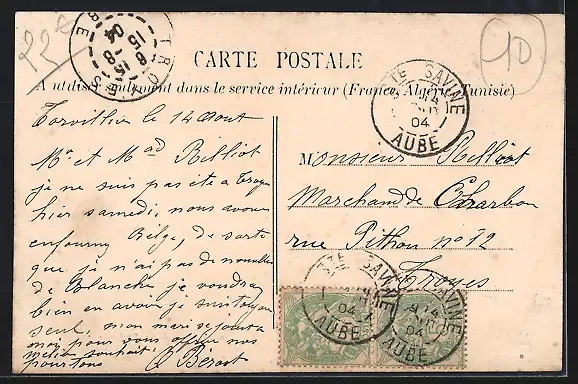 22
TROYES AUBE
15-8
04
CARTE POSTALE
A utiliser seulement dans le service intérieur (France, Algérie, Tunisie)
STE SAVINE
04
AUBE
10
Torvilliers le 14 Aout
Mr et Mad Billiot
je ne suis pas ete a Troyes
hier samedi, nous avons
enfourny Belge, de sorte
que je n'ai pas de nouvelles
de Blanche je voudrais
bien en avoir je suis toujours
seul, mon mari se joint a
moi pour vous offrir nos
meilleurs souhaits
pour tous
Monsieur Billiot
Marchand de Charbon
rue Pithou no 12
Troyes
STE SAVINE
04
AUBE
SAVINE
04
AUBE